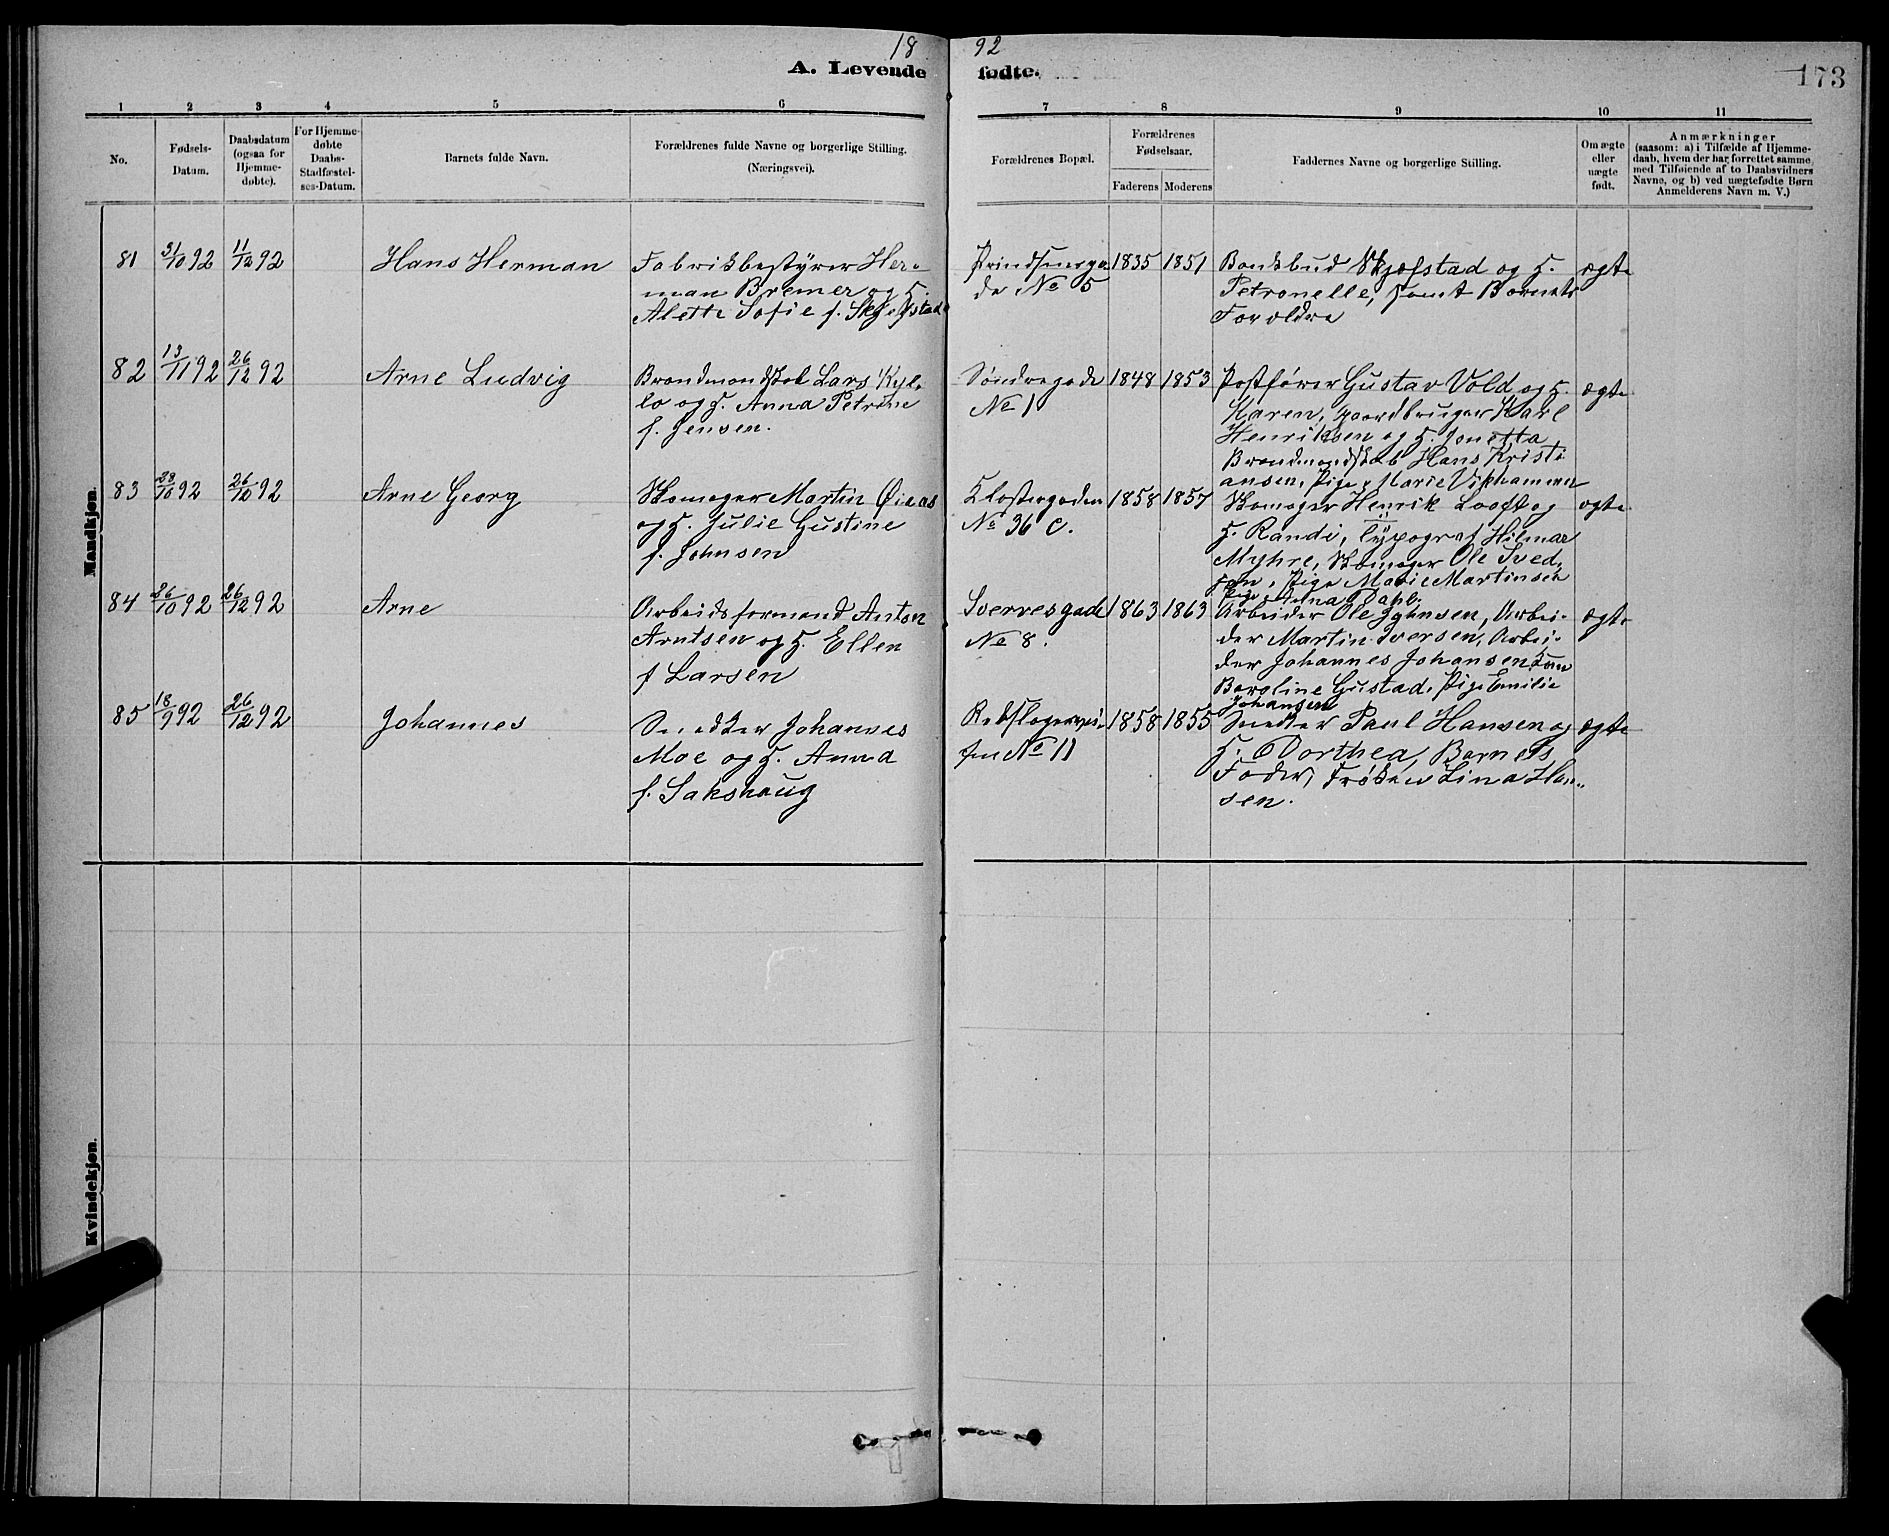 18 92
A. Levende fødte.
173
1 2 3 4 5 6 7 8 9 10 11
No.
Fødsels-
Datum.
Daabsdatum
(ogsaa for
Hjemme-
døbte).
For Hjemme-
døbte
Daabs-
Stadfæstel-
ses-Datum.
Barnets fulde Navn.
Forældrenes fulde Navne og borgerlige Stilling.
(Næringsvei).
Forældrenes Bopæl.
Forældrenes
Fødselsaar.
Faderens Moderens
Faddernes Navne og borgerlige Stilling.
Om ægte
eller
uægte
født.
Anmærkninger
(saasom: a) i Tilfælde af Hjemme-
daab, hvem der har forrettet samme,
med Tilføiende af to Daabsvidners
Navne, og b) ved uægtefødte Børn
Anmelderens Navn m. V.)
Mandkjøn.
81 31/10 92 11/12 92 Hans Herman
Fabrikbestyrer Her-
man Bremer og H.
Alette Sofie f. Skjefstad
Prindsensga
de No 5
1835 1851
Bankbud Skjefstad og H.
Petronelle, samt Barnets
Forældre
ægte
82 13/11 92 26/12 92 Arne Ludvig
Brandmandskab Lars Kyl-
lo og H. Anna Petrine
f. Jensen.
Søndregade
No 1
1848 1853
Postfører Gustav Vold og H.
Karen, Gaardbruger Karl
Henriksen og H. Jonetta
Brandmandskab Hans Kristi
ansen, Pige Marie Vikhammer
ægte
83 28/10 92 26/10 92 Arne Georg
Skomager Martin Øiaas
og H. Julie Gustine
f. Johnsen
Klostergaden
No 36 C.
1858 1857
Skomager Henrik Looft og
H. Randi, Typograf Hilmar
Myhre, Skomager Ole Sved-
Pige Marie Martinsen
Pige Anna Dahl.
ægte
84 26/10 92 26/12 92 Arne
Arbeidsformand Anton
Arntsen og H. Ellen
f Larsen
Sverresgade
No 8.
1863 1863
Arbeider Ole Johnsen, Arbei-
der Martin Iversen, Arbei-
der Johannes Johansen
Beroline Gustad, Pige Emilie
Johansen
ægte
85 18/9 92 26/12 92 Johannes
Snedker Johannes
Moe og H. Anna
f. Sakshaug
Rebslagervei
ten No 11
1858 1855
Snedker Paul Hansen og
H. Dorthea, Barnets
Fader, Frøken Lina Han-
sen.
ægte
Kvindekjøn.